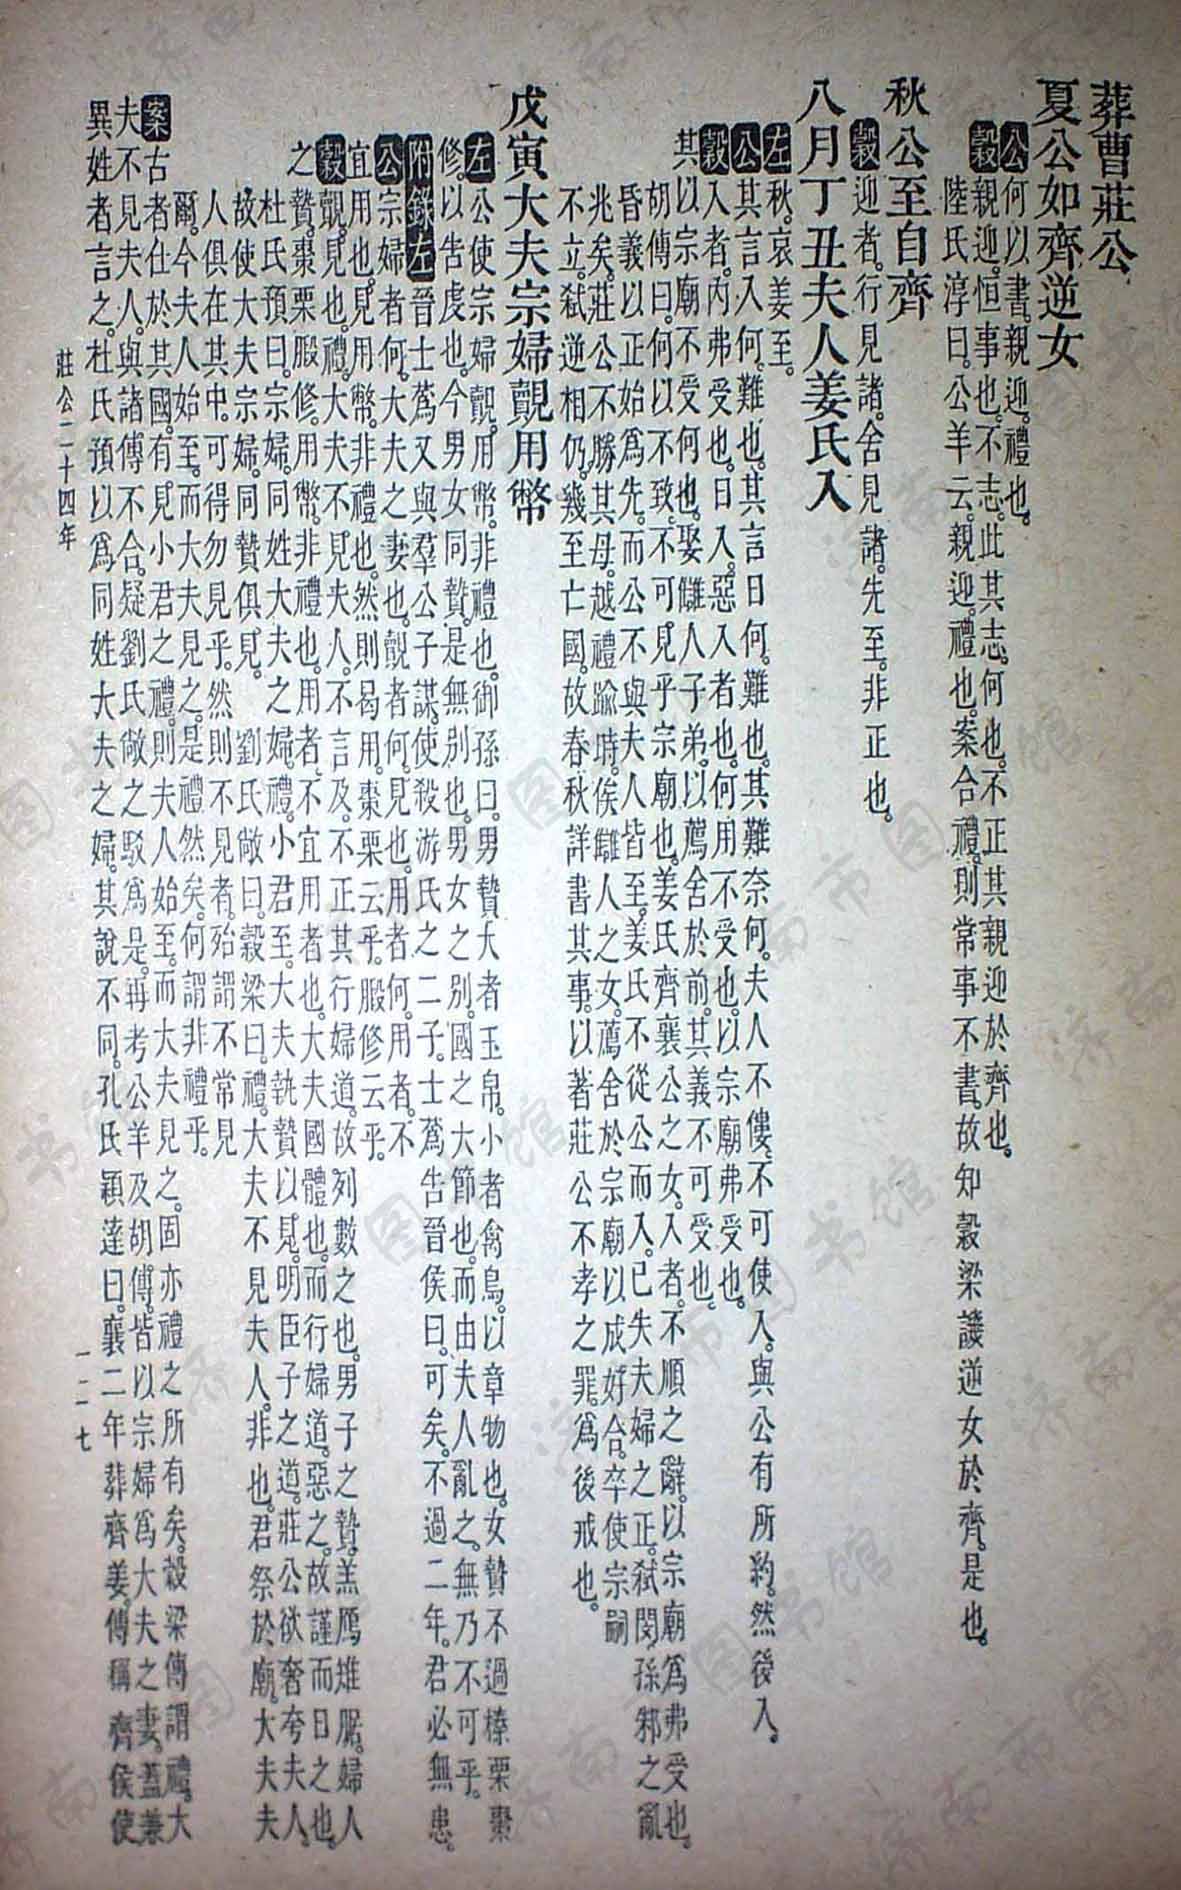 葬曹莊公
夏公如齊逆女
公何以書。親迎。禮也。
穀親迎。恒事也。不志。此其志。何也。不正其親迎於齊也。
陸氏淳曰。公羊云。親迎。禮也。案合禮。則常事不書。故知穀梁譏逆女於齊。是也。
秋公至自齊
穀迎者。行見諸。舍見諸。先至。非正也。
八月丁丑夫人姜氏入
左秋。哀姜至。
公其言入何。難也。其言日何。難也。其難奈何。夫人不僂。不可使入。與公有所約。然後入。
穀入者。內弗受也。日入。惡入者也。何用不受也。以宗廟弗受也。
其以宗廟不受何也。娶讎人子弟。以薦舍於前。其義不可受也。
胡傳曰。何以不致。不可見乎宗廟也。姜氏齊襄公之女。入者。不順之辭。以宗廟爲弗受也。
昏義以正始爲先。而公不與夫人皆至。姜氏不從公而入。已失夫婦之正。弒閔孫邾之亂
兆矣。莊公不勝其母。越禮踰時。俟讎人之女。薦舍於宗廟以成好合。卒使宗嗣
不立。弒逆相仍。幾至亡國。故春秋詳書其事。以著莊公不孝之罪。爲後戒也。
戊寅大夫宗婦覿用幣
左公使宗婦覿。用幣。非禮也。御孫曰。男贄大者玉帛。小者禽鳥。以章物也。女贄不過榛栗棗
修。以告虔也。今男女同贄。是無別也。男女之別。國之大節也。而由夫人亂之。無乃不可乎。
附錄左晉士蔿又與羣公子謀。使殺游氏之二子。士蔿告晉侯曰。可矣。不過二年。君必無患。
公宗婦者何。大夫之妻也。覿者何。見也。用者何。用者。不
宜用也。見用幣。非禮也。然則曷用。棗栗云乎。腶修云乎。
穀覿。見也。禮。大夫不見夫人。不言及。不正其行婦道。故列數之也。男子之贄。羔鴈雉腒。婦人
之贄。棗栗腶修。用幣。非禮也。用者。不宜用者也。大夫國體也。而行婦道。惡之。故謹而日之也。
杜氏預曰。宗婦。同姓大夫之婦。禮。小君至。大夫執贄以見。明臣子之道。莊公欲奢夸夫人。
故使大夫宗婦。同贄俱見。　劉氏敞曰。穀梁曰。禮。大夫不見夫人。非也。君祭於廟。大夫夫
人俱在其中。可得勿見乎。然則不見者。殆謂不常見
爾。今夫人始至。而大夫見之。是禮然矣。何謂非禮乎。
案古者仕於其國。有見小君之禮。則夫人始至。而大夫見之。固亦禮之所有矣。穀梁傳謂禮。大
夫不見夫人。與諸傳不合。疑劉氏敞之駁爲是。再考公羊及胡傳。皆以宗婦爲大夫之妻。蓋兼
異姓者言之。杜氏預以爲同姓大夫之婦。其說不同。孔氏穎達曰。襄二年葬齊姜。傳稱齊侯使
莊公二十四年
一二七